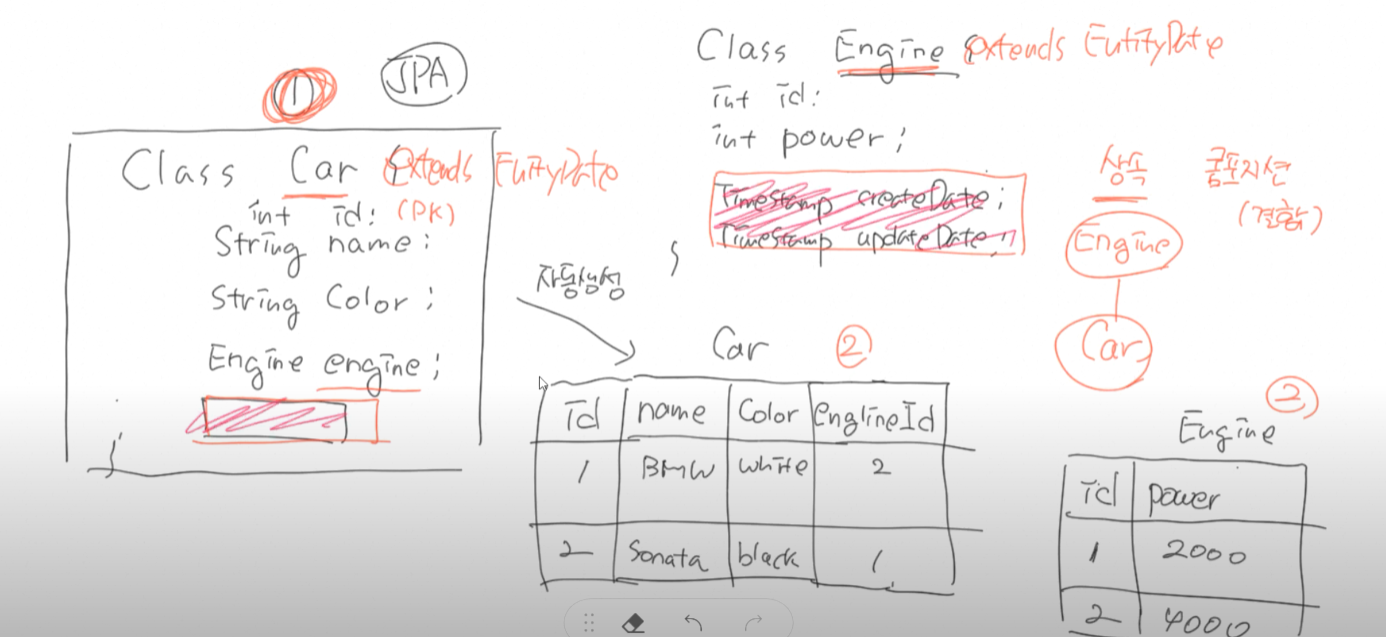 ①
JPA
Class Car { extends EntityDate
int id; (PK)
String name;
String Color;
Engine engine;
}
Class Engine { extends EntityDate
int id;
int power;
Timestamp createDate;
Timestamp updateDate;
}
상속
콤포지션
(결합)
Engine
Car
자동생성
Car ②
id name Color englineId
1 BMW white 2
2 Sonata black 1
②
Engine
id power
1 2000
2 4000